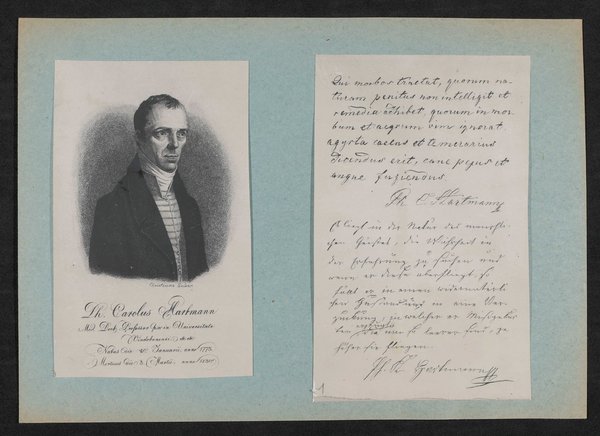 Ph. Carolus Hartmann
Med. Doct. Professor in Universitate
Vindobonensi etc. etc.
Natus die Januarii anno 1773.
Mortuus die Martii anno 1830.
Qui morbos tractat, quorum na-
turam penitus non intelligit et
remedia adhibet, quorum in mor-
bum et aegrum vim ignorat
agyrta caecus et temerarius
dicendus erit, cane pejus et
angue fugiendus.
Ph C Hartmann
Es liegt in der Natur des menschli-
chen Geistes, die Wahrheit in
der Erfahrung zu suchen und
wenn er diese überfliegt so
in einen widernatürli-
chen in eine Ver-
zückung, in welcher er
je
höher sie fliegen.
Ph. K. Hartmann